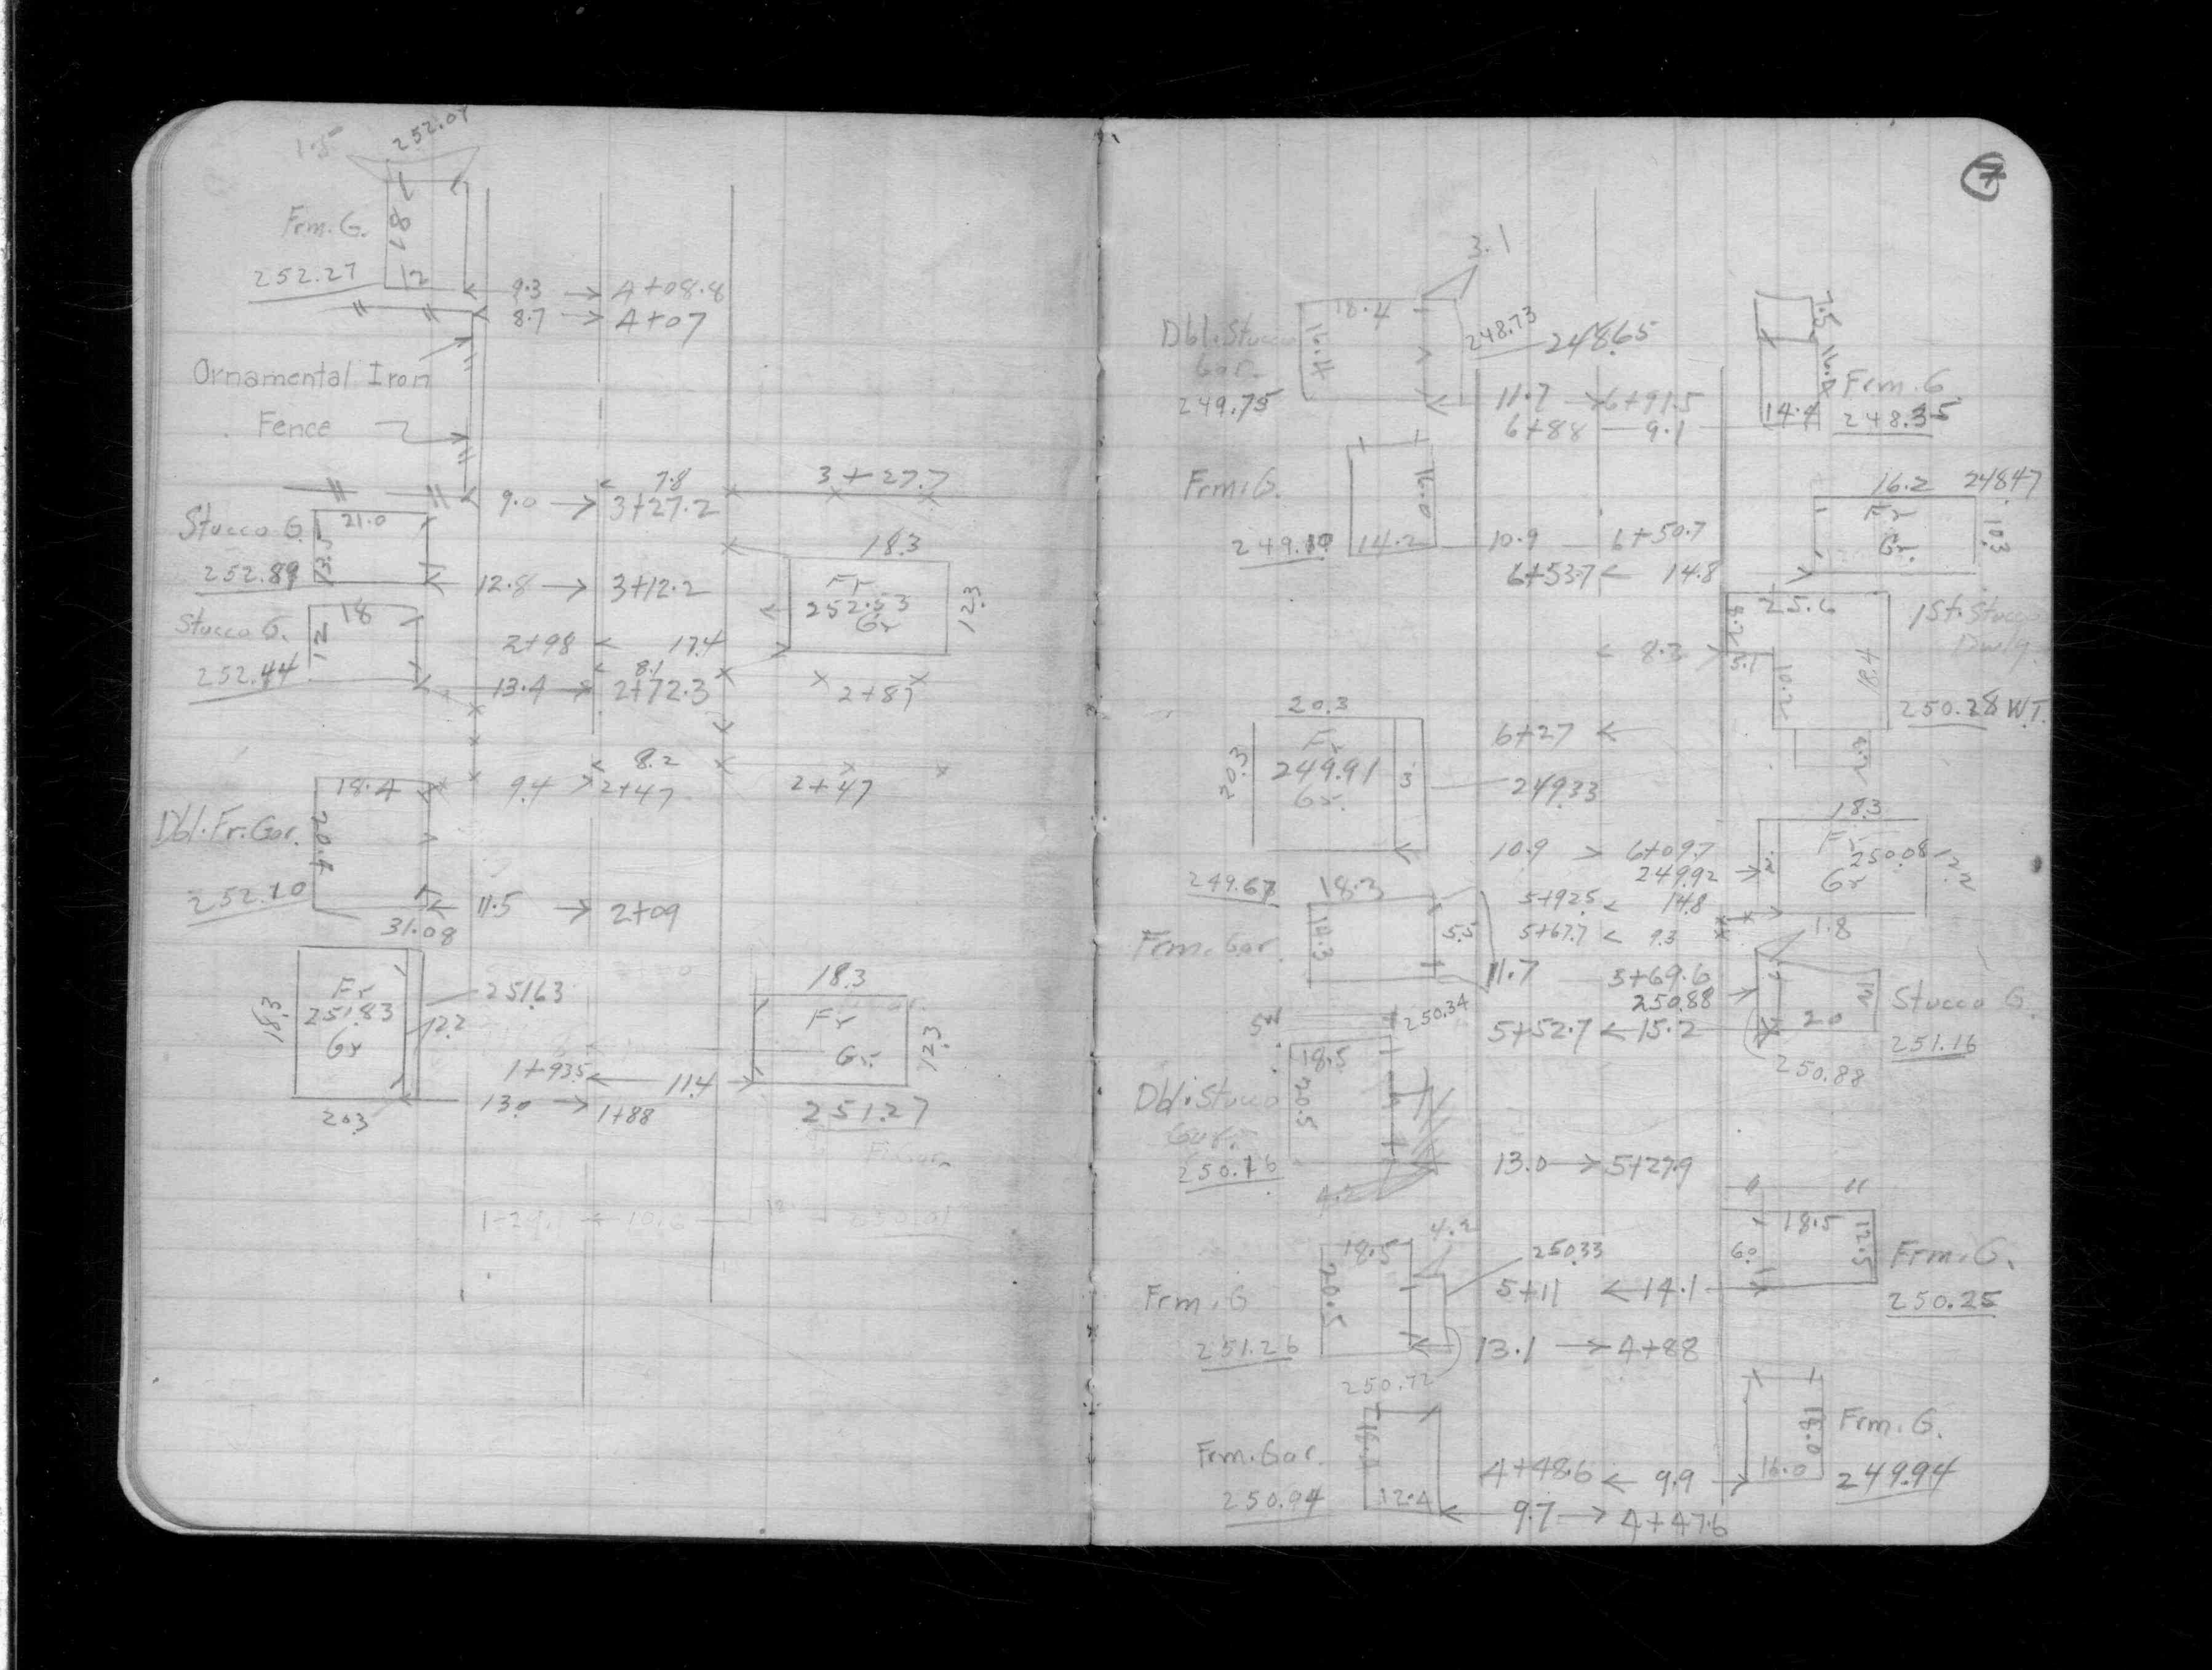 1.5
252.07
Frm. G.
18
252.27
12
9.3 → A+08.8
8.7 → A+07
Ornamental Iron
Fence
7.8
3+27.7
9.0 → 3+27.2
Stucco G.
21.0
13.5
252.89
12.8 → 3+12.2
18.3
Fr
252.53
Gr
12.3
Stucco G.
18
12
2+98 ← 17.4
252.44
8.1
13.4 → 2+72.3
2+87
8.2
18.4
9.4 → 2+47
2+47
Dbl. Fr. Gar.
20.4
252.10
11.5 → 2+09
31.08
18.3
Fr
251.83
Gr
251.63
12.2
18.3
Fr
Gr.
12.3
1+93.5 ← 11.4
13.0 → 1+88
20.3
251.27
3.1
Dbl. Stucco
Gar.
249.75
18.4
16.4
248.73
248.65
11.7 → 6+91.5
6+88 — 9.1
7.5
14.4
Frm. G
248.35
Frm. G.
249.10
14.2
10.9 — 6+50.7
6+53.7 ← 14.8
16.2
248.47
Fr
Gr.
10.3
25.6
8.2
1 St. Stucco
Dwlg.
← 8.3 →
5.1
10.2
18.4
250.28 W.T.
20.3
20.3
Fr
249.91
Gr.
3
6+27 ←
249.33
10.9 > 6+09.7
249.92 →
18.3
Fr
250.08
Gr
12.2
249.67
18.3
14.3
5.5
Frm. Gar.
5+92.5 < 14.8
5+67.7 < 9.3
1.8
11.7 — 5+69.6
250.88 →
Stucco G.
20
251.16
5+52.7 ← 15.2
250.88
250.34
Dbl. Stucco
Gar.
250.76
18.5
20.5
13.0 → 5+27.9
4.2
18.5
20.5
Frm. G
251.26
250.33
5+11 ← 14.1
13.1 → 4+88
18.5
12.5
6.0
Frm. G.
250.25
250.72
Frm. Gar.
250.94
12.4
4+48.6 ← 9.9 →
← 9.7 → 4+47.6
18.0
16.0
Frm. G.
249.94